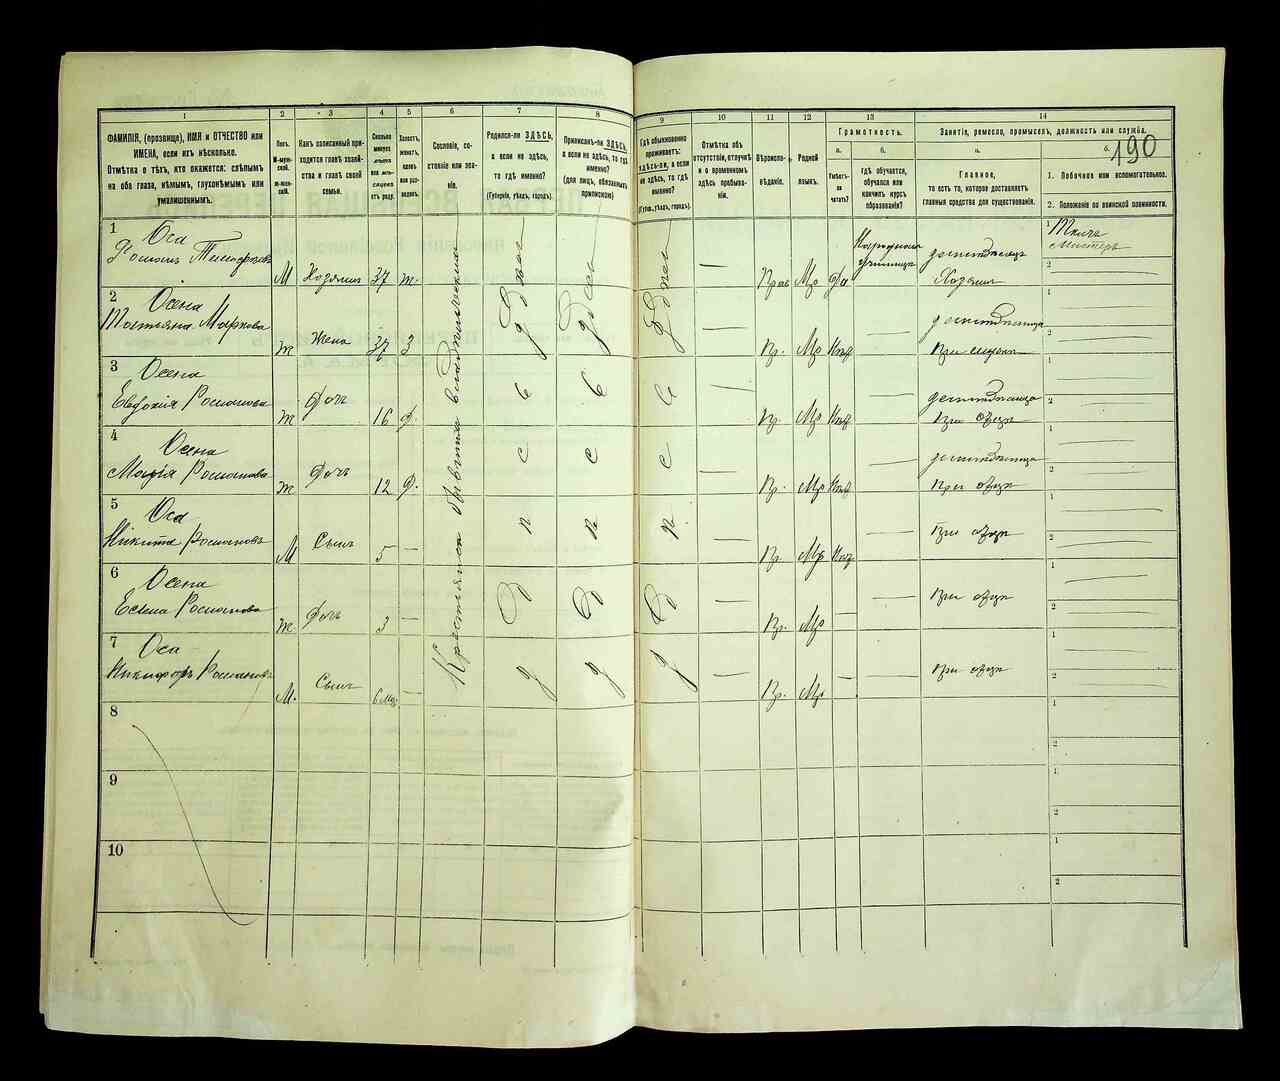 1
2
3
4
5
6
7
8
9
10
11
12
13
14
ФАМИЛІЯ, (прозвище), ИМЯ и ОТЧЕСТВО или
ИМЕНА, если ихъ нѣсколько.
Отмѣтка о тѣхъ, кто окажется: слѣпымъ
на оба глаза, нѣмымъ, глухонѣмымъ или
умалишеннымъ.
Полъ.
М-муж-
ской.
Ж-жен-
скій.
Какъ записанный при-
ходится главѣ хозяй-
ства и главѣ своей
семьи.
Сколько
минуло
лѣтъ
или
мѣсяцевъ
отъ роду.
Холостъ,
женатъ,
вдовъ
или раз-
веденъ.
Сословіе, со-
стояніе или зва-
ніе.
Родился-ли ЗДѢСЬ,
а если не здѣсь,
то гдѣ именно?
(Губернія, уѣздъ, городъ).
Приписанъ-ли ЗДѢСЬ,
а если не здѣсь, то гдѣ
именно?
(для лицъ, обязанныхъ
припискою)
Гдѣ обыкновенно
проживаетъ:
здѣсь-ли, а если
не здѣсь, то гдѣ
именно?
(Губер., уѣздъ, городъ).
Отмѣтка объ
отсутствіи, отлучкѣ
и о временномъ
здѣсь пребыва-
ніи.
Вѣроиспо-
вѣданіе.
Родной
языкъ.
Грамотность.
а.
б.
Умѣетъ-
ли
читать?
гдѣ обучается,
обучался или
кончилъ курсъ
образованія?
Занятіе, ремесло, промыселъ, должность или служба.
а.
б.
190
Главное,
то есть то, которое доставляетъ
главныя средства для существованія.
1. Побочное или вспомогательное.
2. Положеніе по воинской повинности.
1
Оса
Романъ
М Хозяинъ 37 ж.
Крестьянинъ бывшій владѣльческій
Здѣсь Здѣсь Здѣсь
— Прав Мр да
Народномъ
училищѣ
Хозяинъ
1 Ткачь
Мастеръ
2
2
Осена
Татьяна Маркова
Ж Жена 37 З
— Пр. Мр —
1
2
3
Осена
Евдокія Романова
Ж Дочь 16 Д.
— Пр. Мр —
При отцѣ
1
2
4
Осена
Марія Романова
Ж Дочь 12 Д.
— Пр. Мр —
При отцѣ
1
2
5
Оса
Никита Романовъ
М Сынъ 5 —
— Пр. Мр —
При отцѣ
1
2
6
Осена
Елена Романова
Ж Дочь 3 —
— Пр. Мр —
При отцѣ
1
2
7
Оса
Никифоръ Романовъ
М. Сынъ 6 мѣс. —
— Пр. Мр — —
При отцѣ
1
2
8
1
2
9
1
2
10
1
2